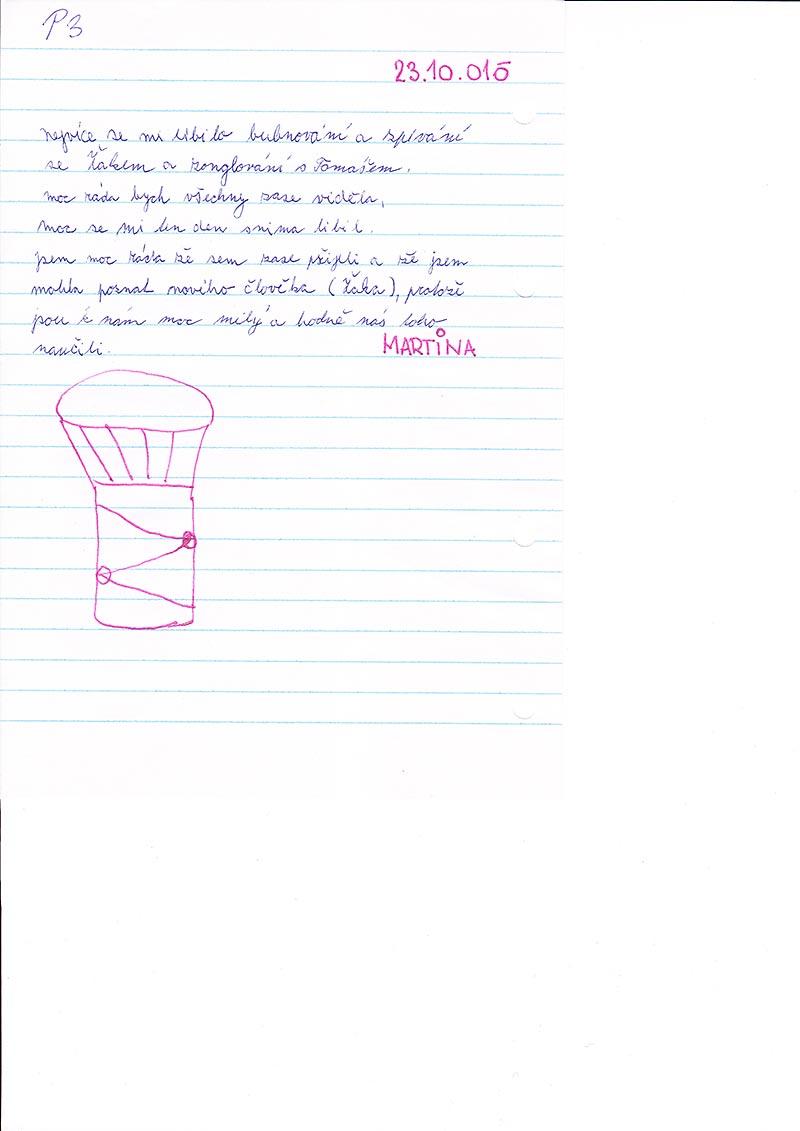 P3
23.10.015
nejvíce se mi libilo bubnování a zpívání
se Žákem a žonglování s Tomášem.
moc ráda bych všechny zase viděla,
moc se mi ten den snima libil.
jsem moc ráda že sem zase přijeli a že jsem
mohla poznat nového člověka (Žáka), protože
jsou k nám moc milý a hodně nás toho
naučili.
MARTiNA